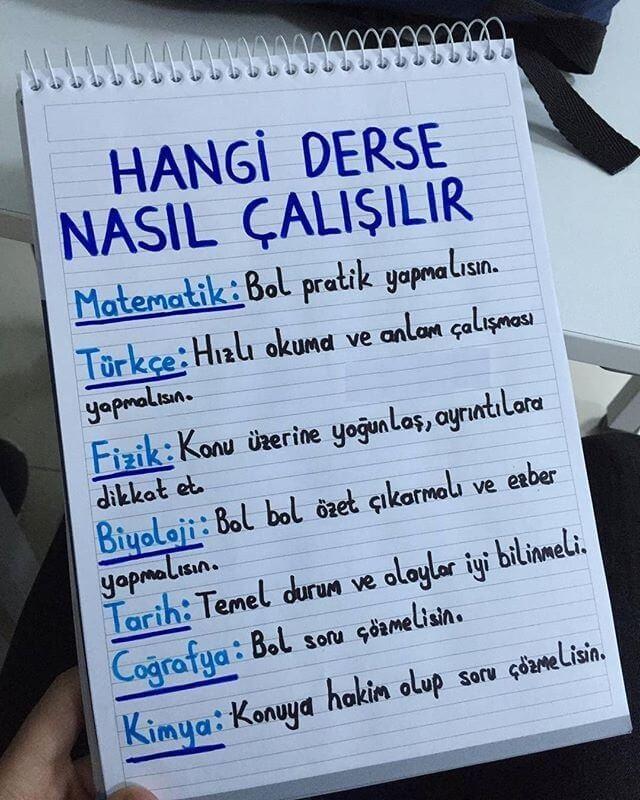 HANGİ DERSE
NASIL ÇALIŞILIR
Matematik: Bol pratik yapmalısın.
Türkçe: Hızlı okuma ve anlam çalışması
yapmalısın.
Fizik: Konu üzerine yoğunlaş, ayrıntılara
dikkat et.
Biyoloji: Bol bol özet çıkarmalı ve ezber
yapmalısın.
Tarih: Temel durum ve olaylar iyi bilinmeli.
Coğrafya: Bol soru çözmelisin.
Kimya: Konuya hakim olup soru çözmelisin.